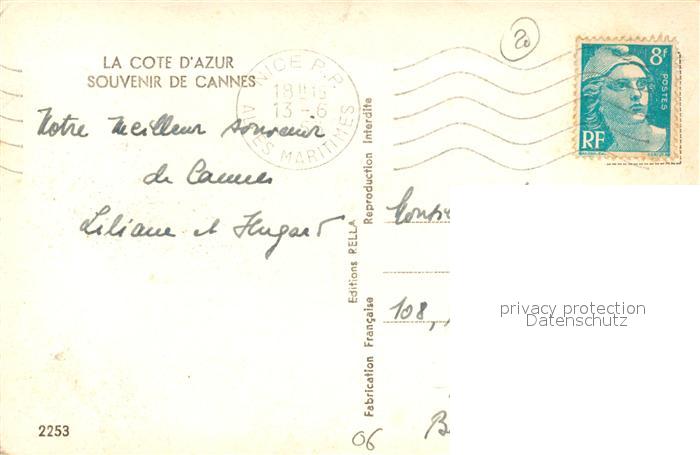 LA COTE D'AZUR
SOUVENIR DE CANNES
Notre meilleur souvenir
de Cannes
Liliane et
2253
NICE P.P.
13 -6
ALPES MARITIMES
20
8f
POSTES
RF
Editions RELLA
Reproduction Interdite
Fabrication Française
108,
06
privacy protection
Datenschutz